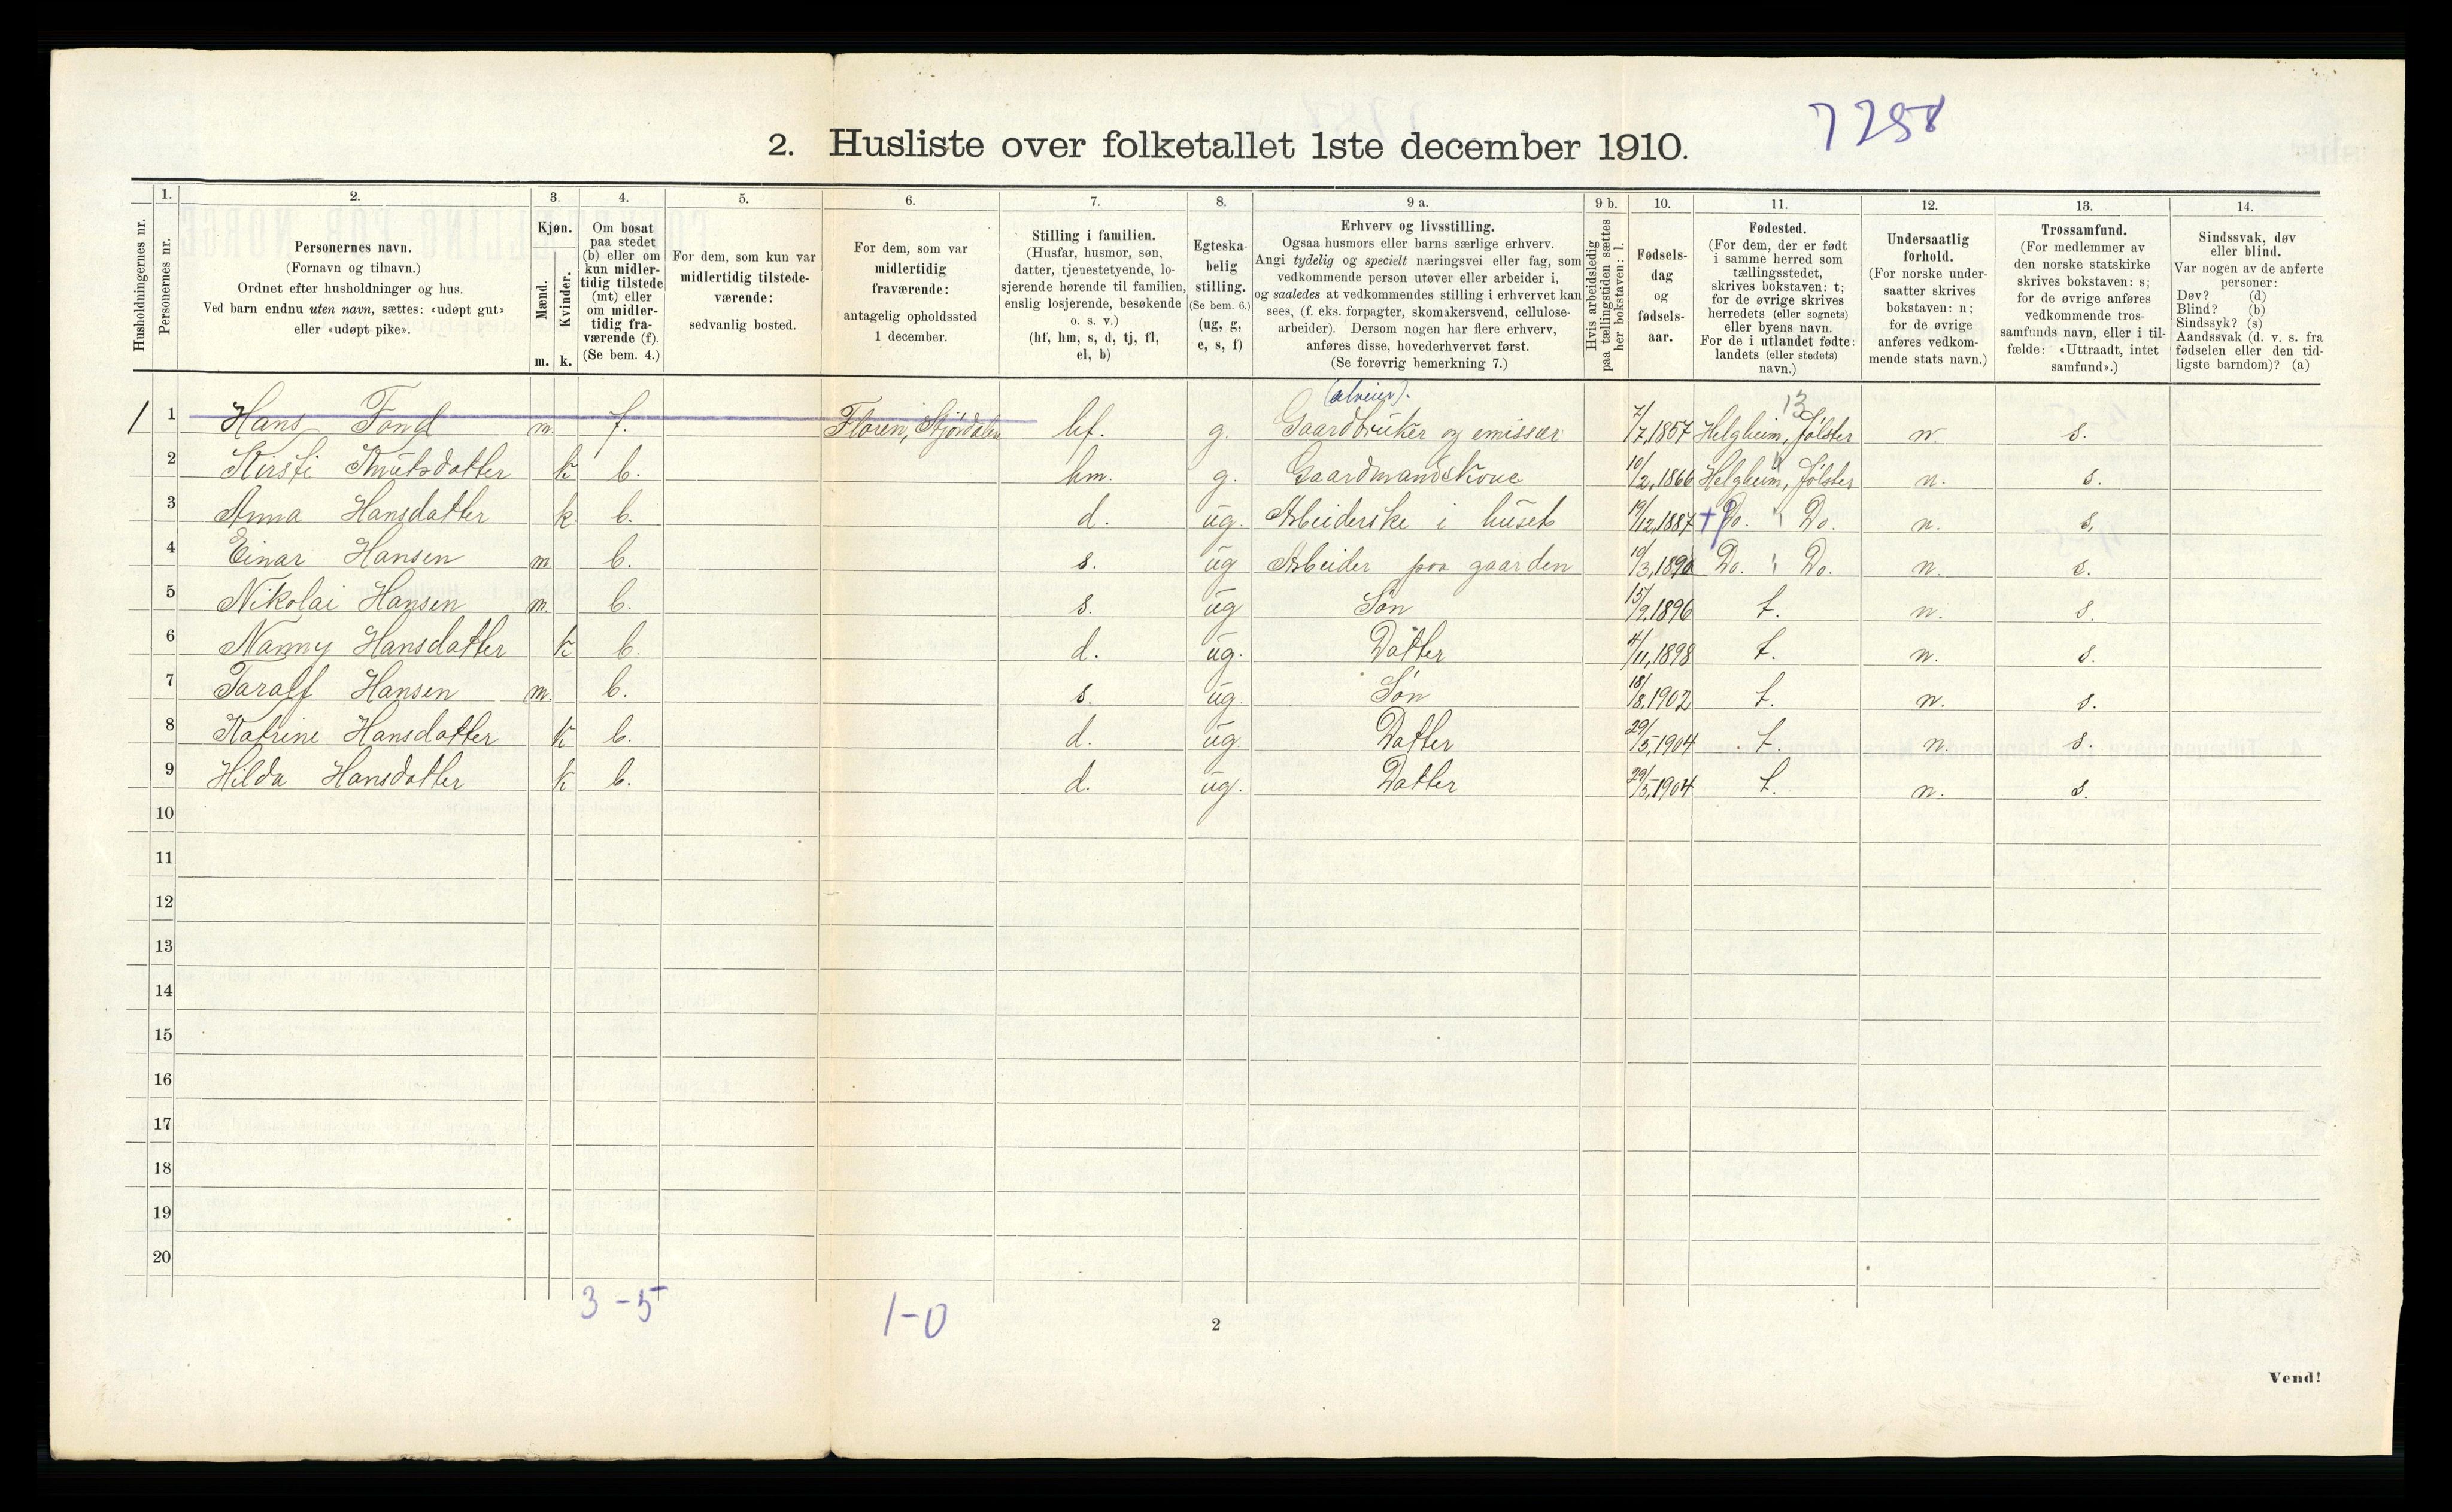 7258
2. Husliste over folketallet 1ste december 1910.
Husholdningernes nr.
1. Personernes nr.
2. Personernes navn.
(Fornavn og tilnavn.)
Ordnet efter husholdninger og hus.
Ved barn endnu uten navn, sættes: «udøpt gut»
eller «udøpt pike».
3. Kjøn.
Mænd. m.
Kvinder. k.
4. Om bosat
paa stedet
(b) eller om
kun midler-
tidig tilstede
(mt) eller
om midler-
tidig fra-
værende (f).
(Se bem. 4.)
5. For dem, som kun var
midlertidig tilstede-
værende:
sedvanlig bosted.
6. For dem, som var
midlertidig
fraværende:
antagelig opholdssted
1 december.
7. Stilling i familien.
(Husfar, husmor, søn,
datter, tjenestetyende, lo-
sjerende hørende til familien,
enslig losjerende, besøkende
o. s. v.)
(hf, hm, s, d, tj, fl,
el, b)
8. Egteska-
belig
stilling.
(Se bem. 6.)
(ug, g,
e, s, f)
9 a. Erhverv og livsstilling.
Ogsaa husmors eller barns særlige erhverv.
Angi tydelig og specielt næringsvei eller fag, som
vedkommende person utøver eller arbeider i,
og saaledes at vedkommendes stilling i erhvervet kan
sees, (f. eks. forpagter, skomakersvend, cellulose-
arbeider). Dersom nogen har flere erhverv,
anføres disse, hovederhvervet først.
(Se forøvrig bemerkning 7.)
9 b. Hvis arbeidsledig
paa tællingstiden sættes
her bokstaven: l.
10. Fødsels-
dag
og
fødsels-
aar.
11. Fødested.
(For dem, der er født
i samme herred som
tællingsstedet,
skrives bokstaven: t;
for de øvrige skrives
herredets (eller sognets)
eller byens navn.
For de i utlandet fødte:
landets (eller stedets)
navn.)
12. Undersaatlig
forhold.
(For norske under-
saatter skrives
bokstaven: n;
for de øvrige
anføres vedkom-
mende stats navn.)
13. Trossamfund.
(For medlemmer av
den norske statskirke
skrives bokstaven: s;
for de øvrige anføres
vedkommende tros-
samfunds navn, eller i til-
fælde: «Uttraadt, intet
samfund».)
14. Sindssvak, døv
eller blind.
Var nogen av de anførte
personer:
Døv? (d)
Blind? (b)
Sindssyk? (s)
Aandssvak (d. v. s. fra
fødselen eller den tid-
ligste barndom)? (a)
(selveier). 13
1 1 Hans Fond m f. Floren, Stjørdalen hf. g. Gaardbruker og emissær 7/7,1857 Helgheim, Jølster n. s.
2 Kirsti Knutsdatter k b. hm. g. Gaardmandskone 10/2,1866 Helgheim, Jølster n. s.
3 Anna Hansdatter k b. d. ug. Arbeiderske i huset 19/12,1887 + Do. Do. n. s.
4 Einar Hansen m b. s. ug Arbeider paa gaarden 10/3,1890 Do. Do. n. s.
5 Nikolai Hansen m. b. s. ug Søn 15/9,1896 t. n. s.
6 Nanny Hansdatter k b. d. ug. Datter 4/11,1898 t. n. s.
7 Taralf Hansen m. b. s. ug. Søn 18/8,1902 t. n. s.
8 Katrine Hansdatter k b. d. ug. Datter 29/5,1904 t. n. s.
9 Hilda Hansdatter k b. d. ug. Datter 29/5,1904 t. n. s.
10
11
12
13
14
15
16
17
18
19
20
3-5 1-0
2
Vend!